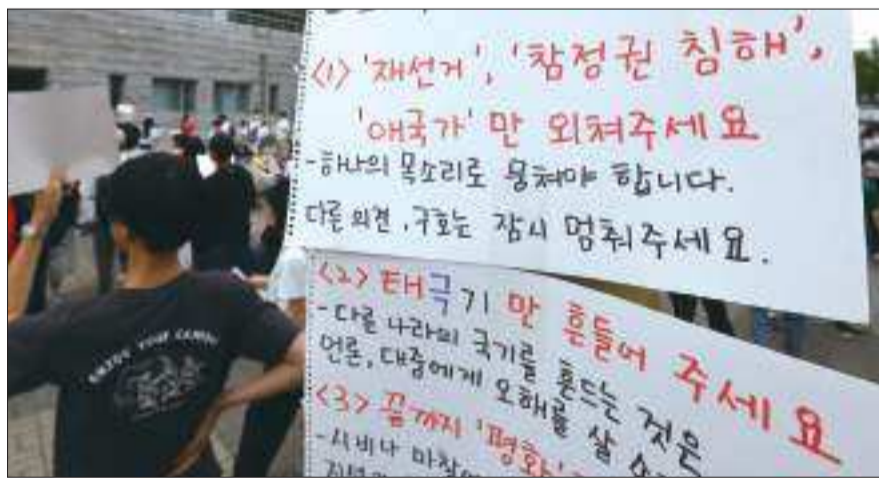 <1> '재선거', '참정권 침해',
'애국가' 만 외쳐주세요
- 하나의 목소리로 뭉쳐야 합니다.
다른 의견, 구호는 잠시 멈춰주세요.
<2> 태극기 만 흔들어 주세요
- 다른 나라의 국기를 흔드는 것은
언론, 대중에게 오해를 살
<3> 끝까지 '평화'
- 시비나
ENJOY YOUR